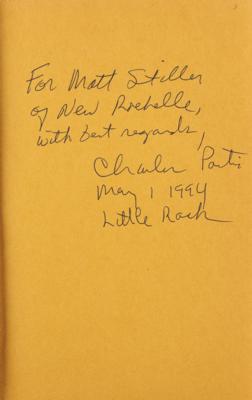 For Matt Stiller
of New Rochelle,
with best regards,
Charles Portis
May 1 1994
Little Rock